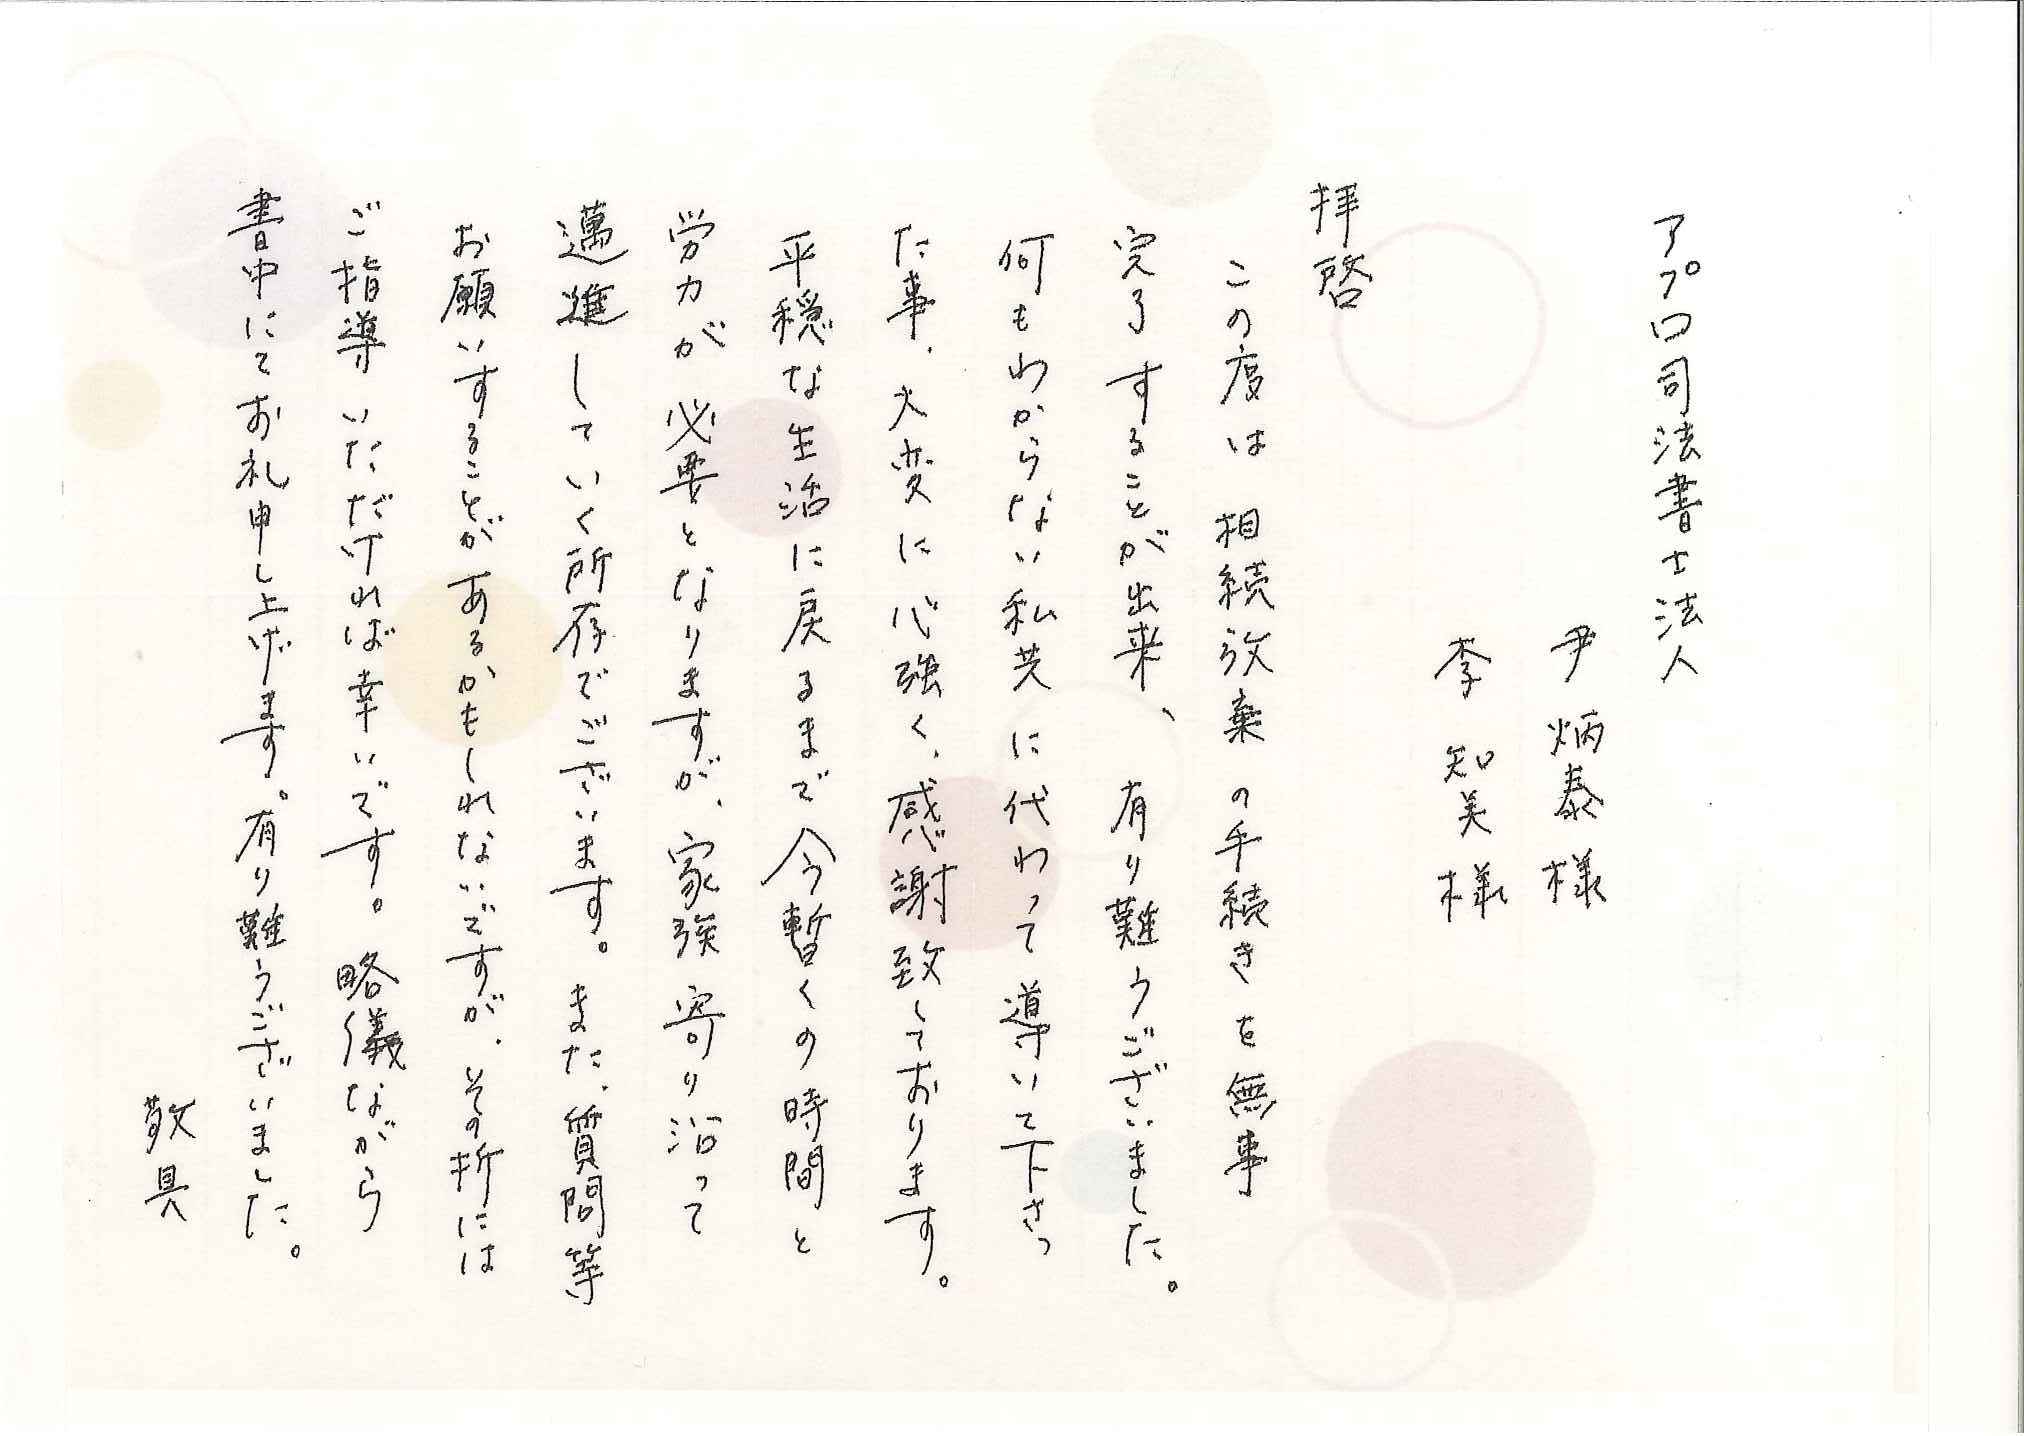 アプロ司法書士法人
尹炳泰様
李知美様
拝啓
この度は相続放棄の手続きを無事
完了することが出来、有り難うございました。
何もわからない私共に代わって導いて下さっ
た事、大変に心強く、感謝致しております。
平穏な生活に戻るまで今暫くの時間と
労力が必要となりますが、家族寄り沿って
邁進していく所存でございます。また、質問等
お願いすることがあるかもしれないですが、その折には
ご指導いただければ幸いです。略儀ながら
書中にてお礼申し上げます。有り難うございました。
敬具